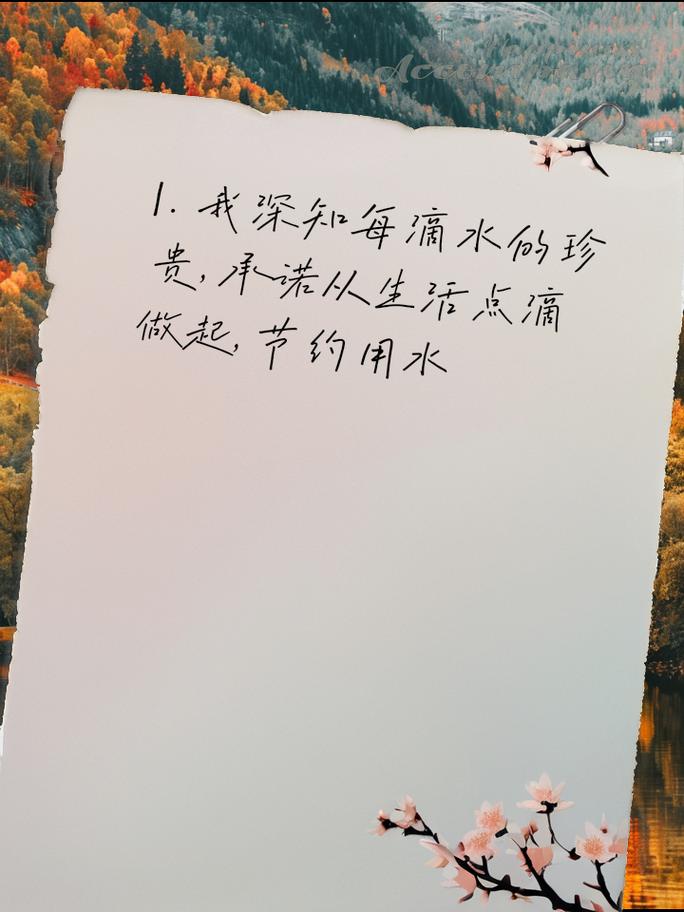 1. 我深知每滴水的珍
贵, 承诺从生活点滴
做起, 节约用水